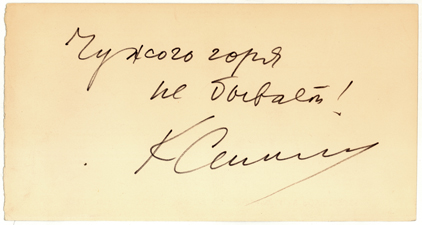 Чужого горя
не бывает!